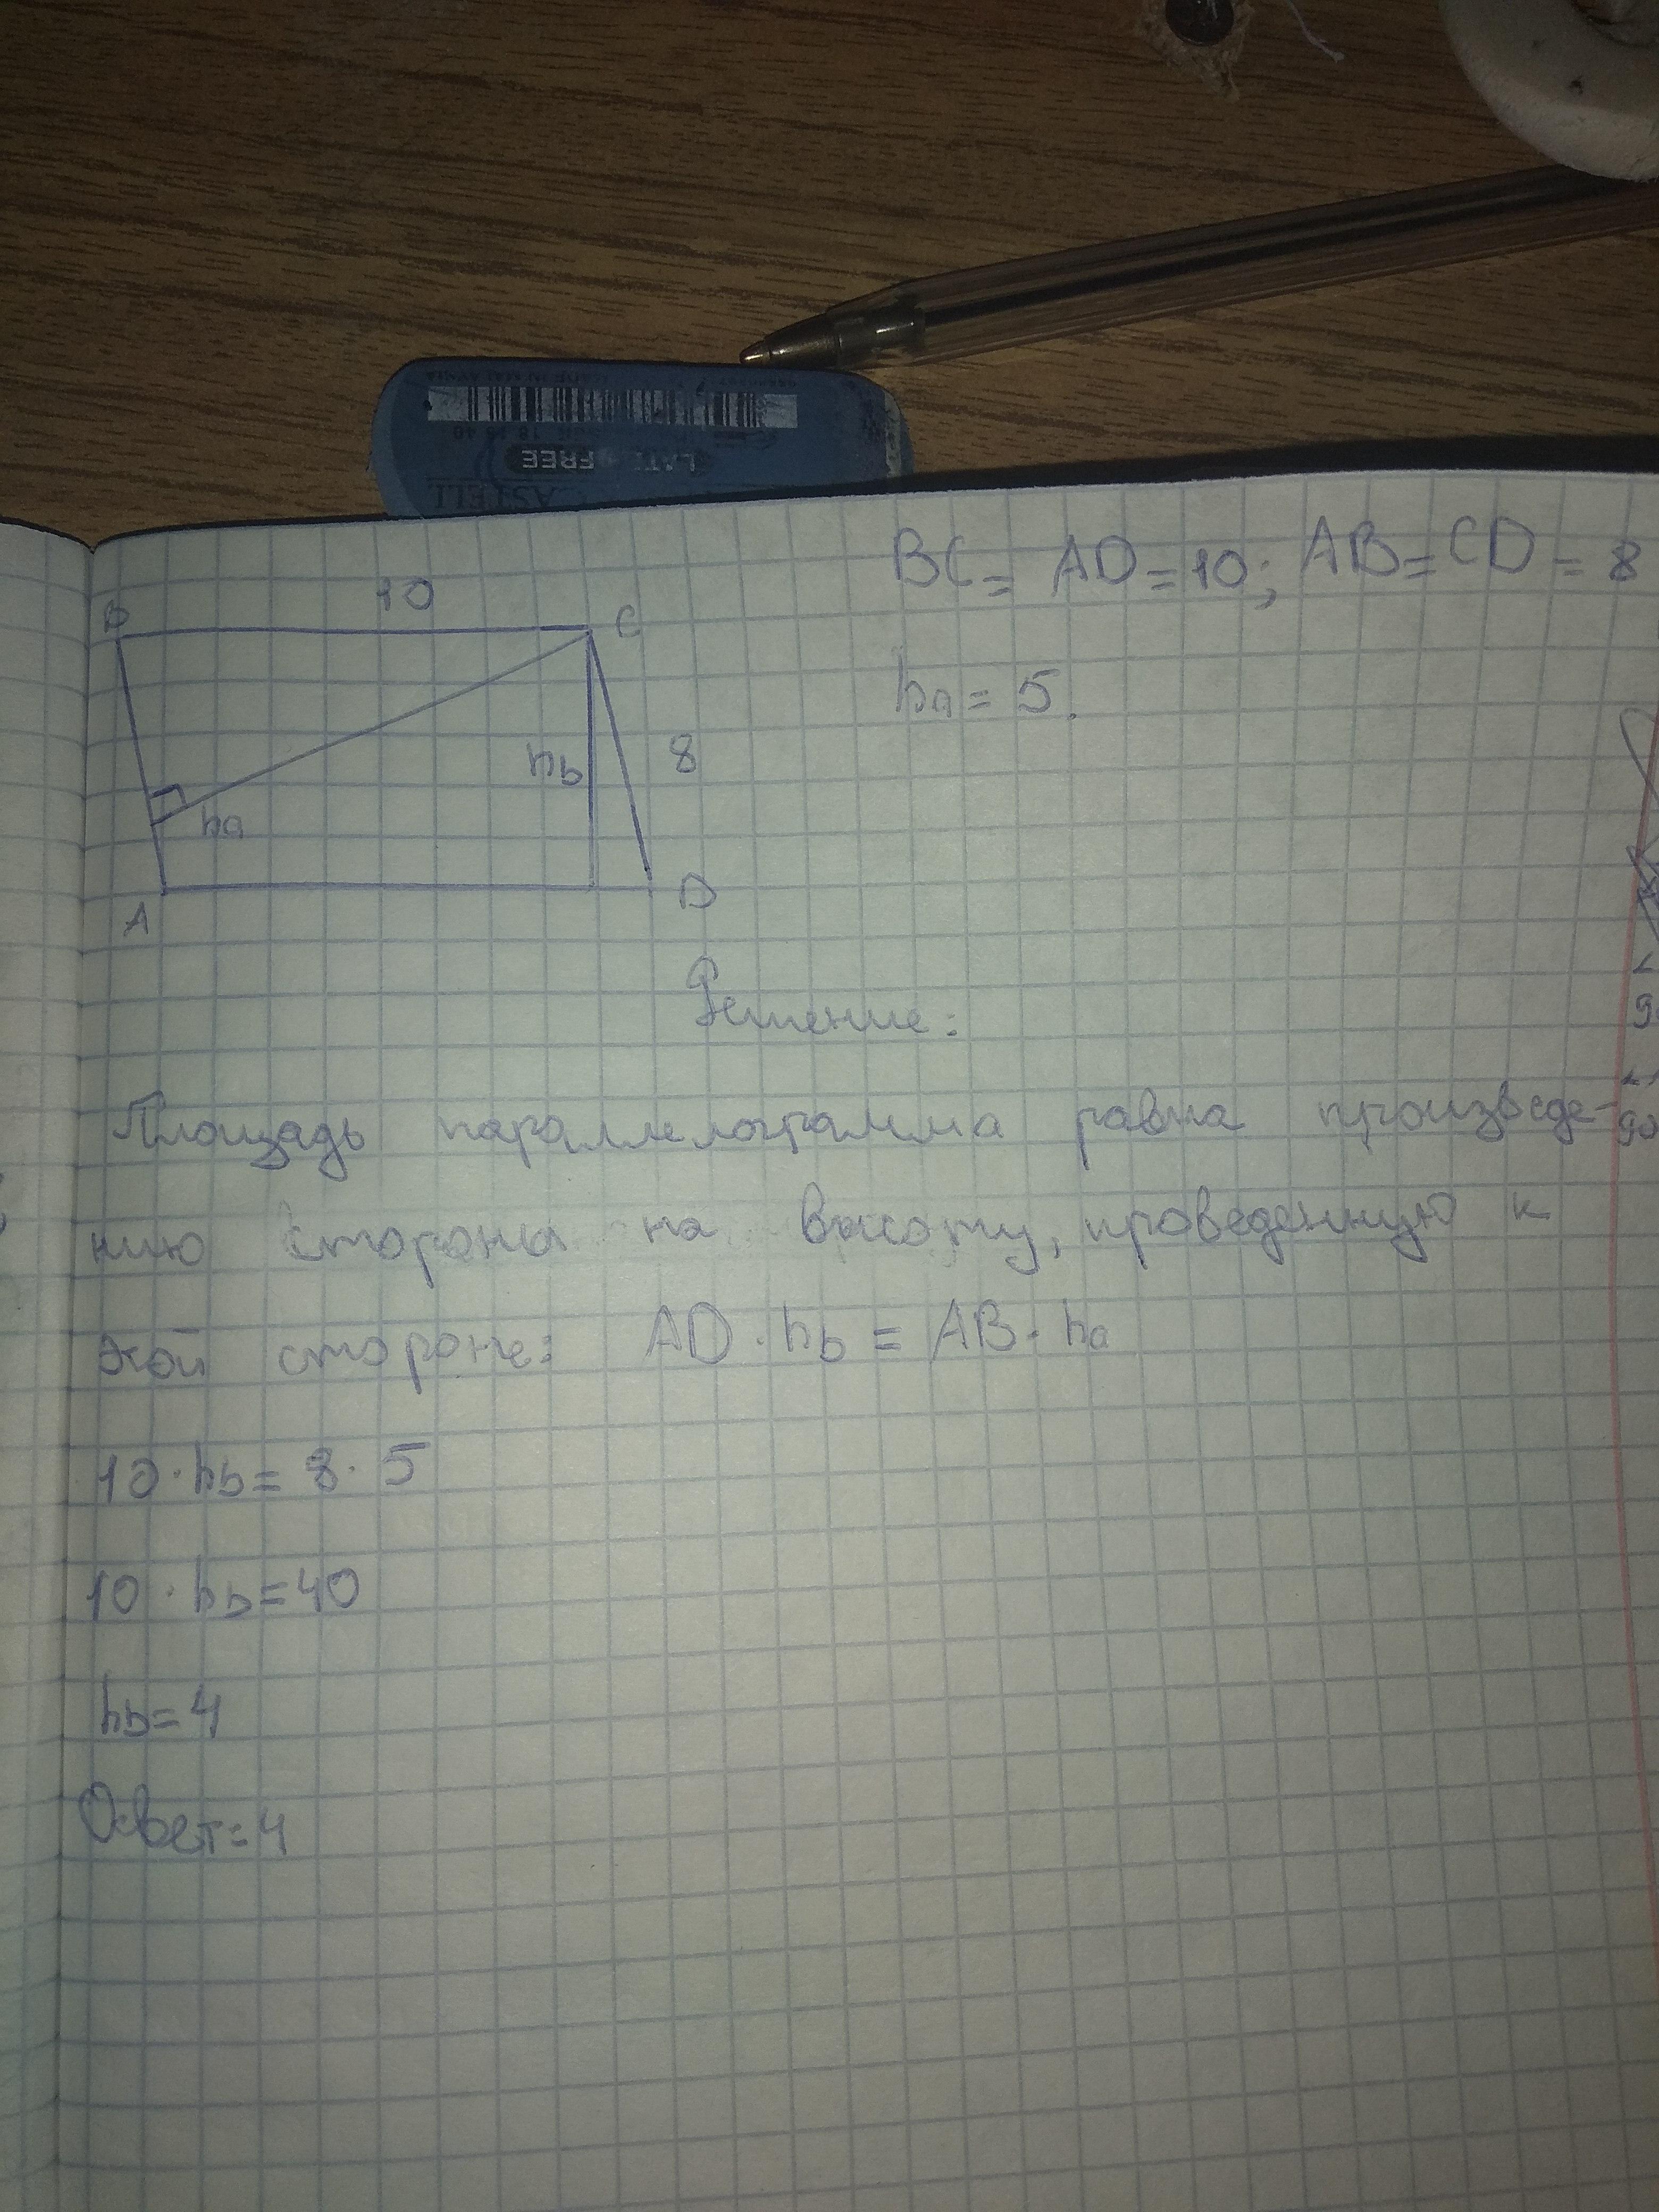 LATEX-FREE
CASTELL
BC = AD = 10; AB = CD = 8
10
B
C
ha = 5.
hb
8
ha
A
D
Решение:
Площадь параллелограмма равна произведе-
нию стороны на высоту, проведенную к
этой стороне: AD · hb = AB · ha
10 · hb = 8 · 5
10 · hb = 40
hb = 4
Ответ: 4